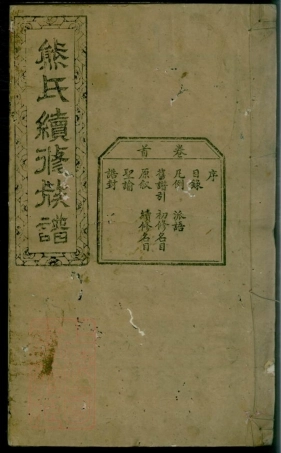 熊氏續修族譜
卷首
序
目錄
凡例 派語
舊譜引 初修名目
原敘 續修名目
聖諭
誥封